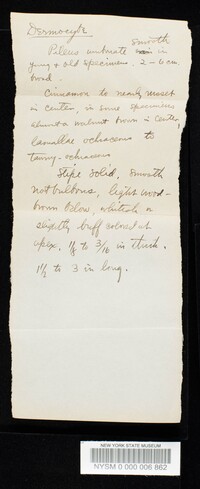 Dermocybe
Pileus umbonate smooth in
young & old specimens. 2-6 cm
broad.
Cinnamon to nearly russet
in center, in some specimens
almost a walnut brown in center,
lamellae ochraceous to
tawny-ochraceous
Stipe solid, smooth
not bulbous, light wood-
brown below, whitish or
slightly buff colored at
apex, 1/8 to 3/16 in thick.
1 1/2 to 3 in long.
NEW YORK STATE MUSEUM
NYSM 0 000 006 862